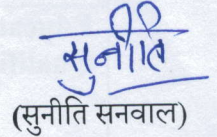 सुनीति
(सुनीति सनवाल)